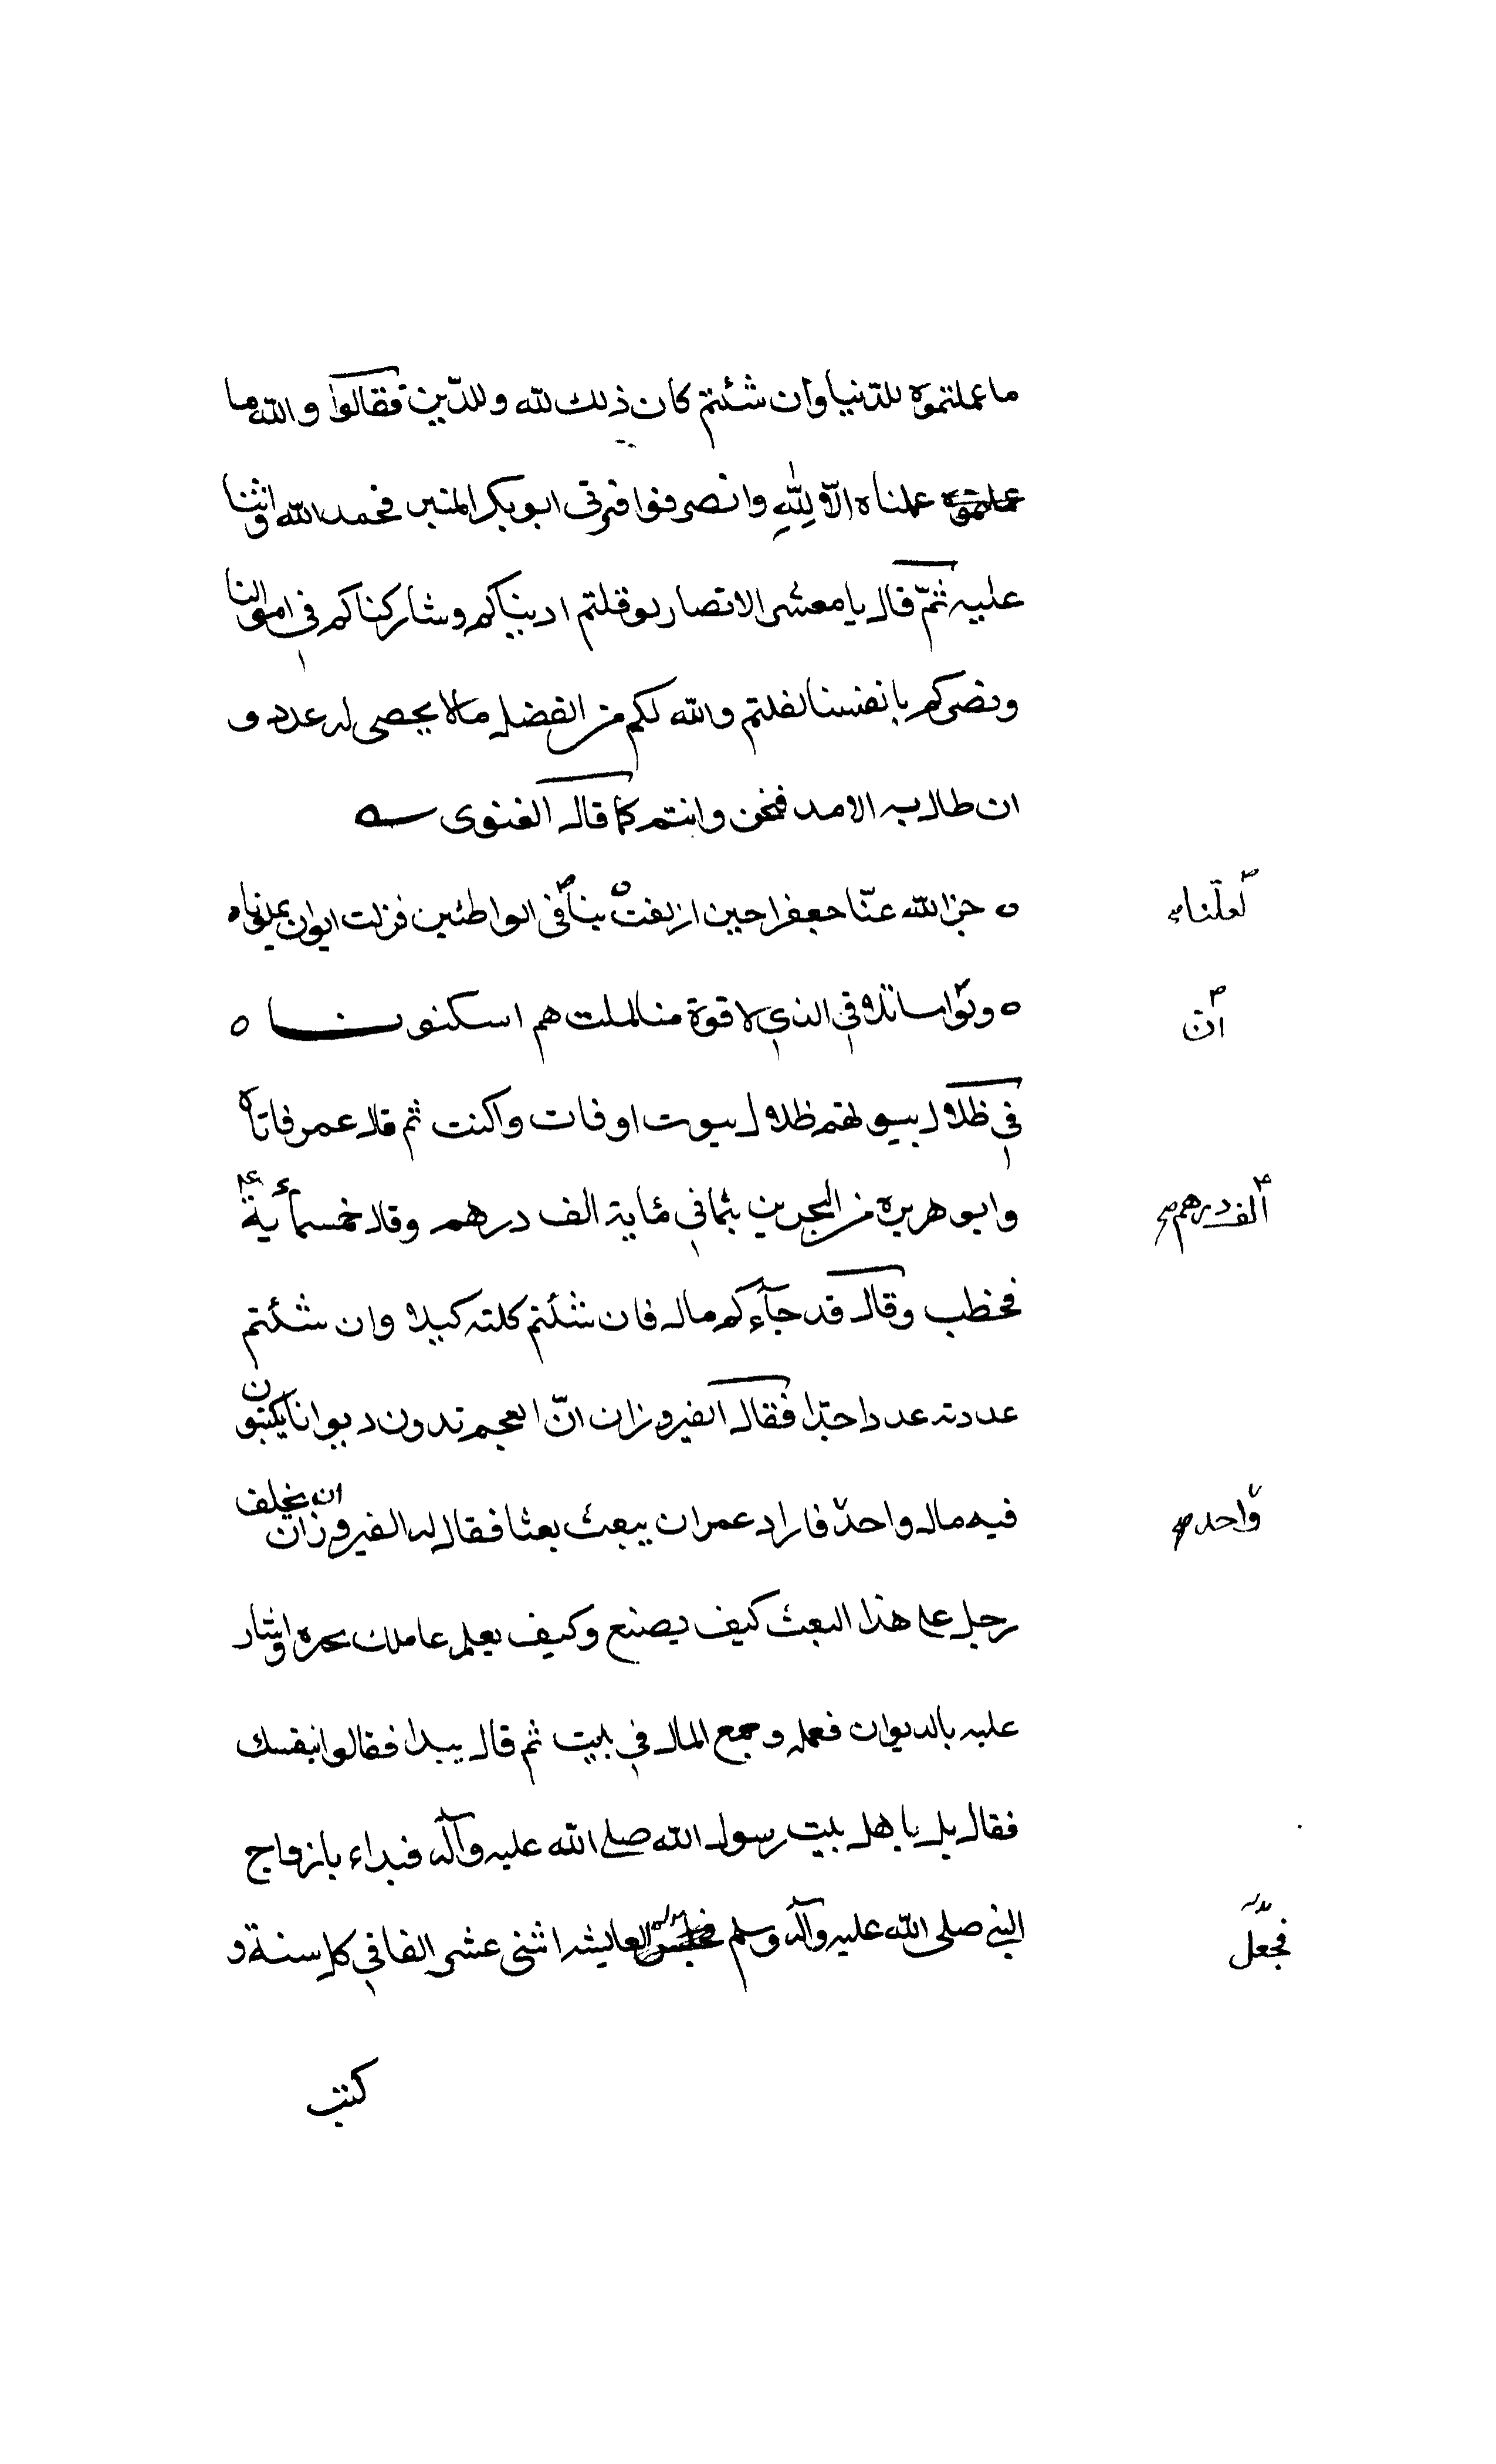 ما عملتموه للدّنيا وان شئتم كان ذلك لله وللدّين فقالوا والله ما
عملناه الّا لِلّٰهِ وانصرفوا فرقى ابوبكر المنبر فحمد الله واثنا
عليه ثمّ قال يا معشر الانصار لو قلتم اديناكم وشاركناكم في اموالنا
ونصركم بانفسنا لقلتم والله لكم من الفضل ما لا يحصى له عدد و
ان طال به الامد فنحن وانتم كما قال الغنوى
ه جزا الله عنّا جعفرا حين ازلفت بنا في الواطئين فزلت ه
لعلنا
ه في الذي لا قوة منا لملت هم اسكنونا ه
ان
في ظلال بيوتهم ظلال بيوت اوفات واكنت ثم قال عمر فاتاه
وابو هريره من البحرين بثماني مأية الف درهم وقال خمسمأية
الف درهم
فخطب وقال قد جآءكم مال فان شئتم كلته كيلا وان شئتم
عددته عددا فقال الفيروزان انّ العجم تدون ديوانا يكتبون
فيه مال واحد فاراد عمر ان يبعث بعثا فقال له الفيروزان ان يخلف
واحد
رجل على هذا البعث كيف يصنع وكيف يعلم عاملك واشار
عليه بالديوان فعمله وجمع المال في بيت ثم قال يبدا فقالوا بنفسك
فقال بل باهل بيت رسول الله صلى الله عليه وآله فبداء بازواج
النبي صلى الله عليه وآله وسلم لعايشه اثنى عشر الفا في كل سنة و
فجعل
كتب